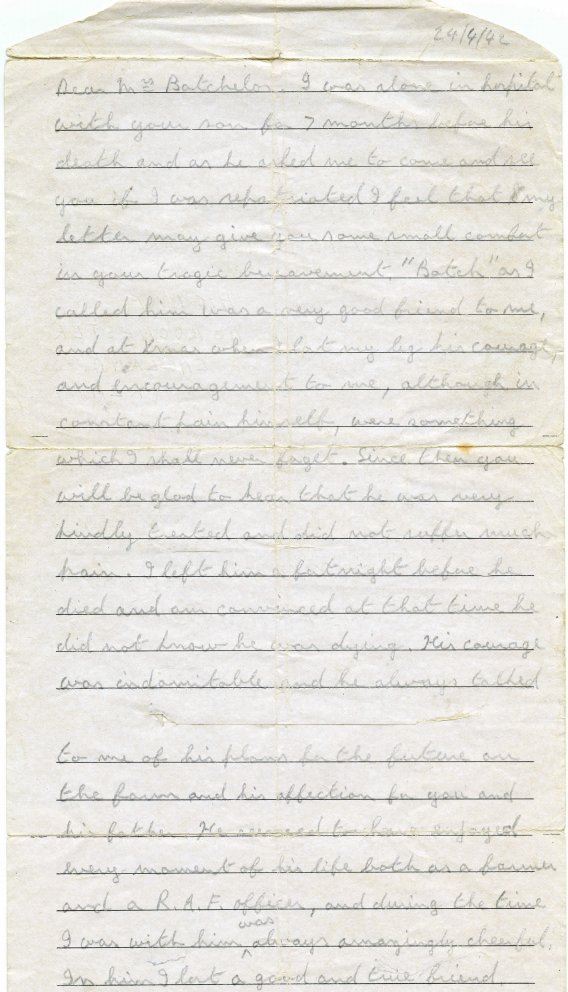 24/4/42
Dear Mrs Batchelor. I was alone in hospital
with your son for 7 months before his
death and as he asked me to come and see
you if I was repatriated I feel that my
letter may give you some small comfort
in your tragic bereavement. "Batch" as I
called him was a very good friend to me,
and at Xmas when I lost my leg his courage,
and encouragement to me, although in
constant pain himself, were something
which I shall never forget. Since then you
will be glad to hear that he was very
kindly treated and did not suffer much
pain. I left him a fortnight before he
died and am convinced at that time he
did not know he was dying. His courage
was indomitable and he always talked
to me of his plans for the future on
the farm and his affection for you and
his father. He seemed to have enjoyed
every moment of his life both as a farmer
and a R.A.F. officer, and during the time
I was with him was always amazingly cheerful.
In him I lost a good and true friend.